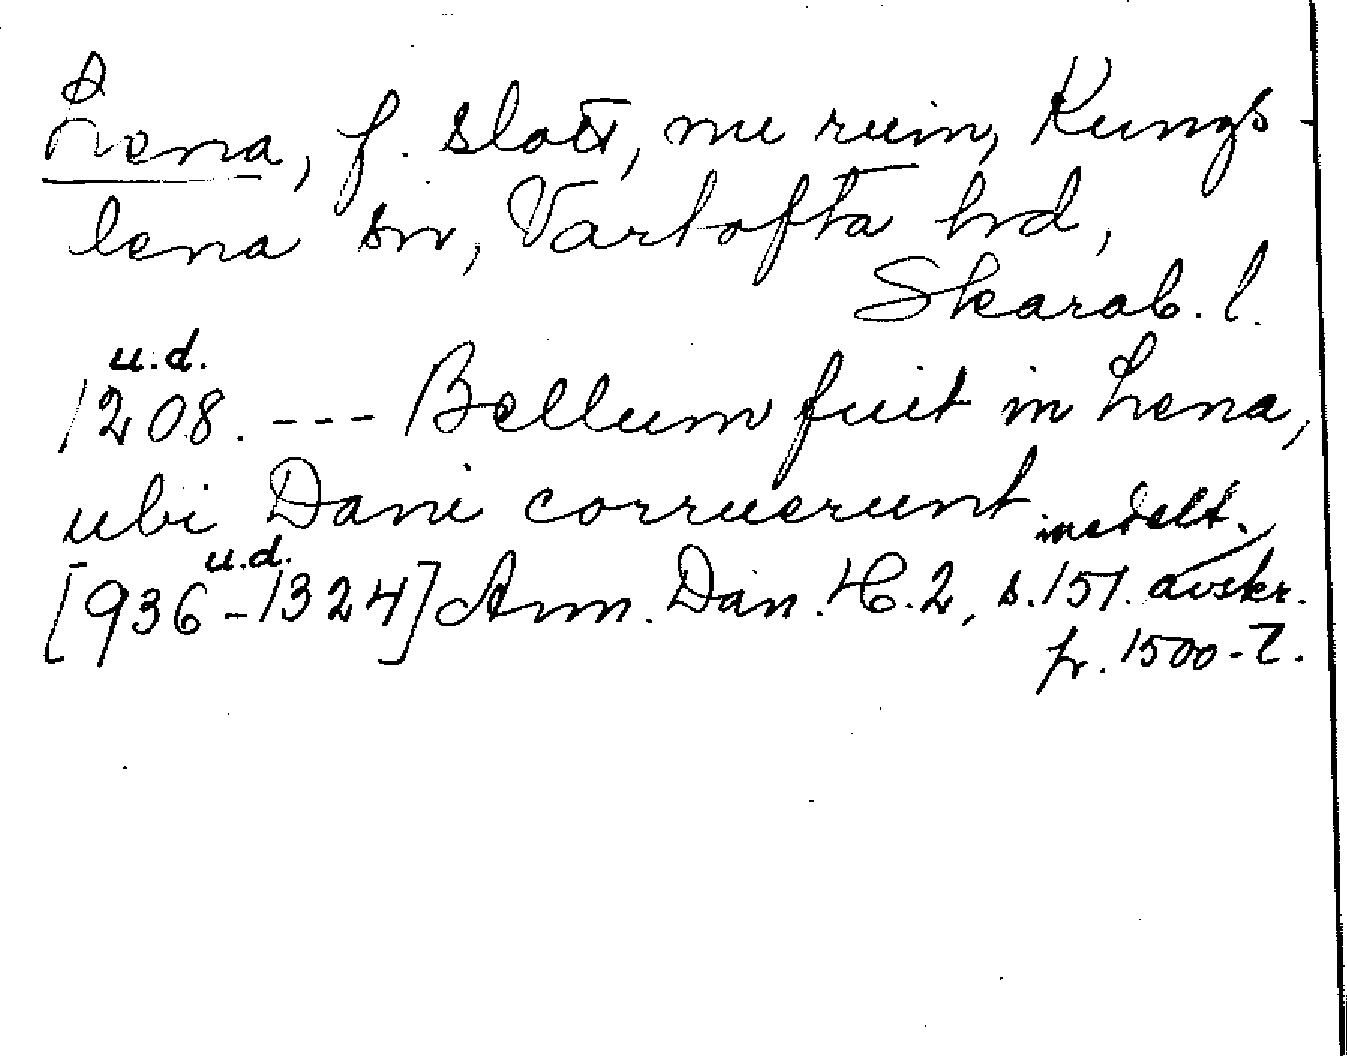 Lena, f. slott, nu ruin, Kungs-
lena sn, Vartofta hd,
Skarab. l.
u.d.
1208. --- Bellum fuit in Lena,
ubi Dani corruerunt
u.d. medelt.
[936-1324] Ann. Dan. H. 2, s. 151. avskr.
fr. 1500-t.